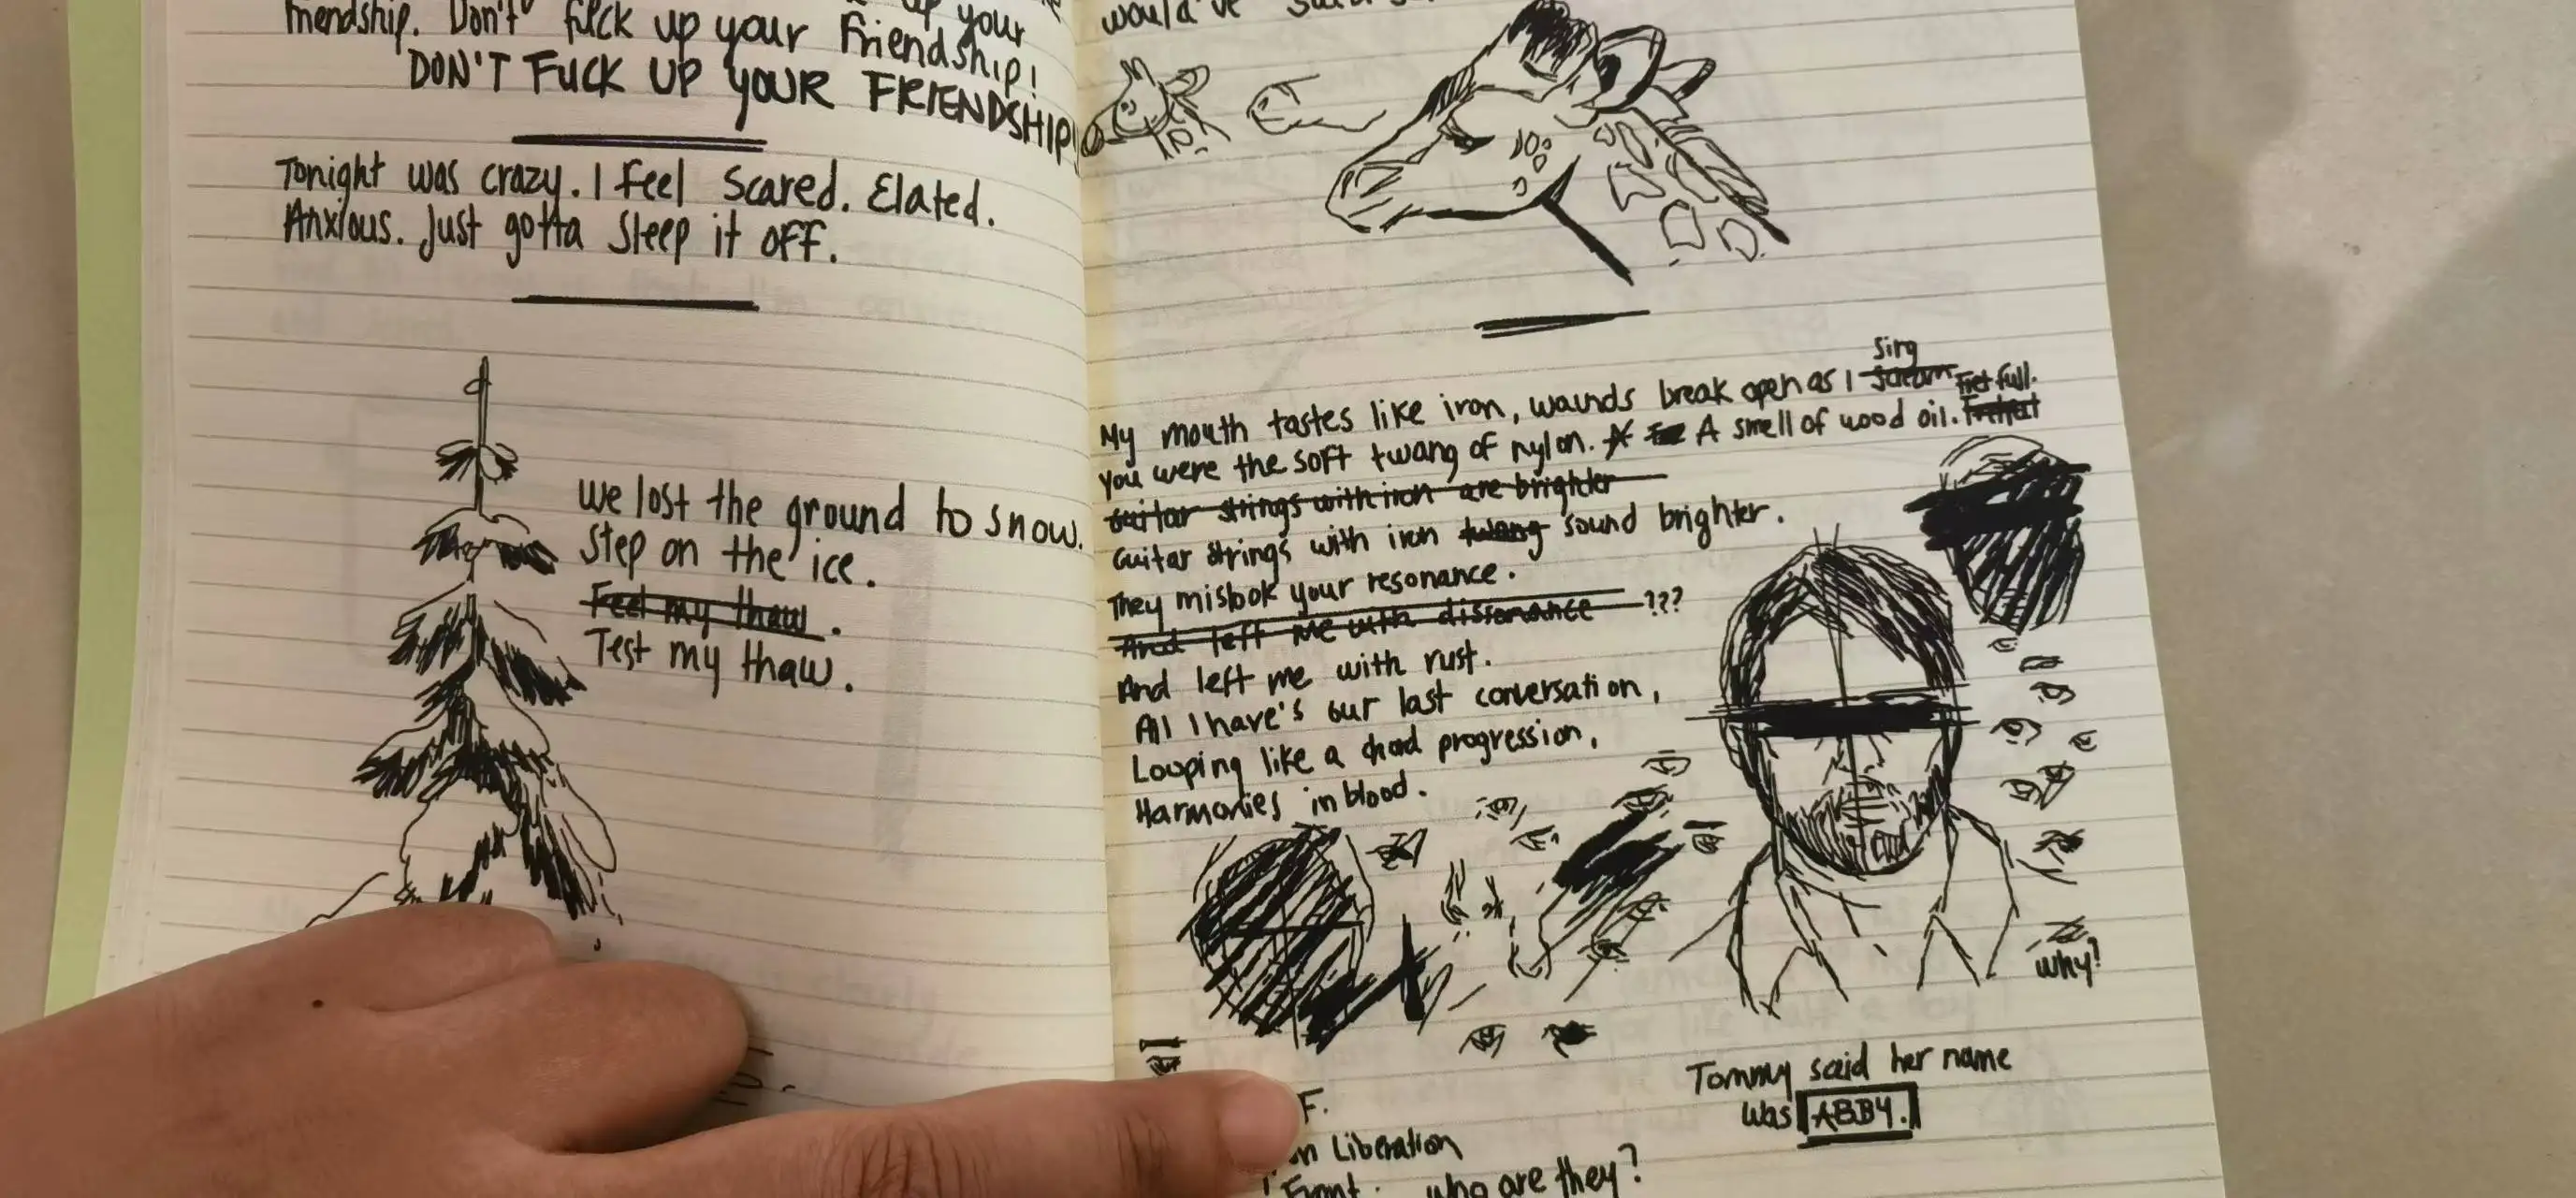 up your
friendship. Don't fuck up your Friendship!
DON'T FUCK UP YOUR FRIENDSHIP!
Tonight was crazy. I feel scared. Elated.
Anxious. Just gotta sleep it off.
We lost the ground to snow.
Step on the ice.
Feel my thaw.
Test my thaw.
would've
My mouth tastes like iron, wounds break open as I scream sing Fretfull.
You were the soft twang of nylon. A A smell of wood oil.
Guitar strings with iron are brighter
Guitar strings with iron twang sound brighter.
They mistook your resonance.
And left me with dissonance ???
And left me with rust.
All I have's our last conversation,
Looping like a chord progression,
Harmonies in blood.
why?
Tommy said her name
was ABBY.
F.
Liberation
Front. who are they?